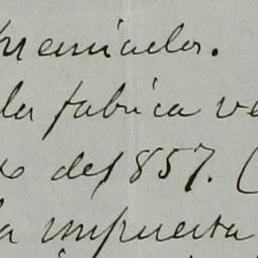 premiados.
la fabrica ve
o de 1857. (
la impuesta